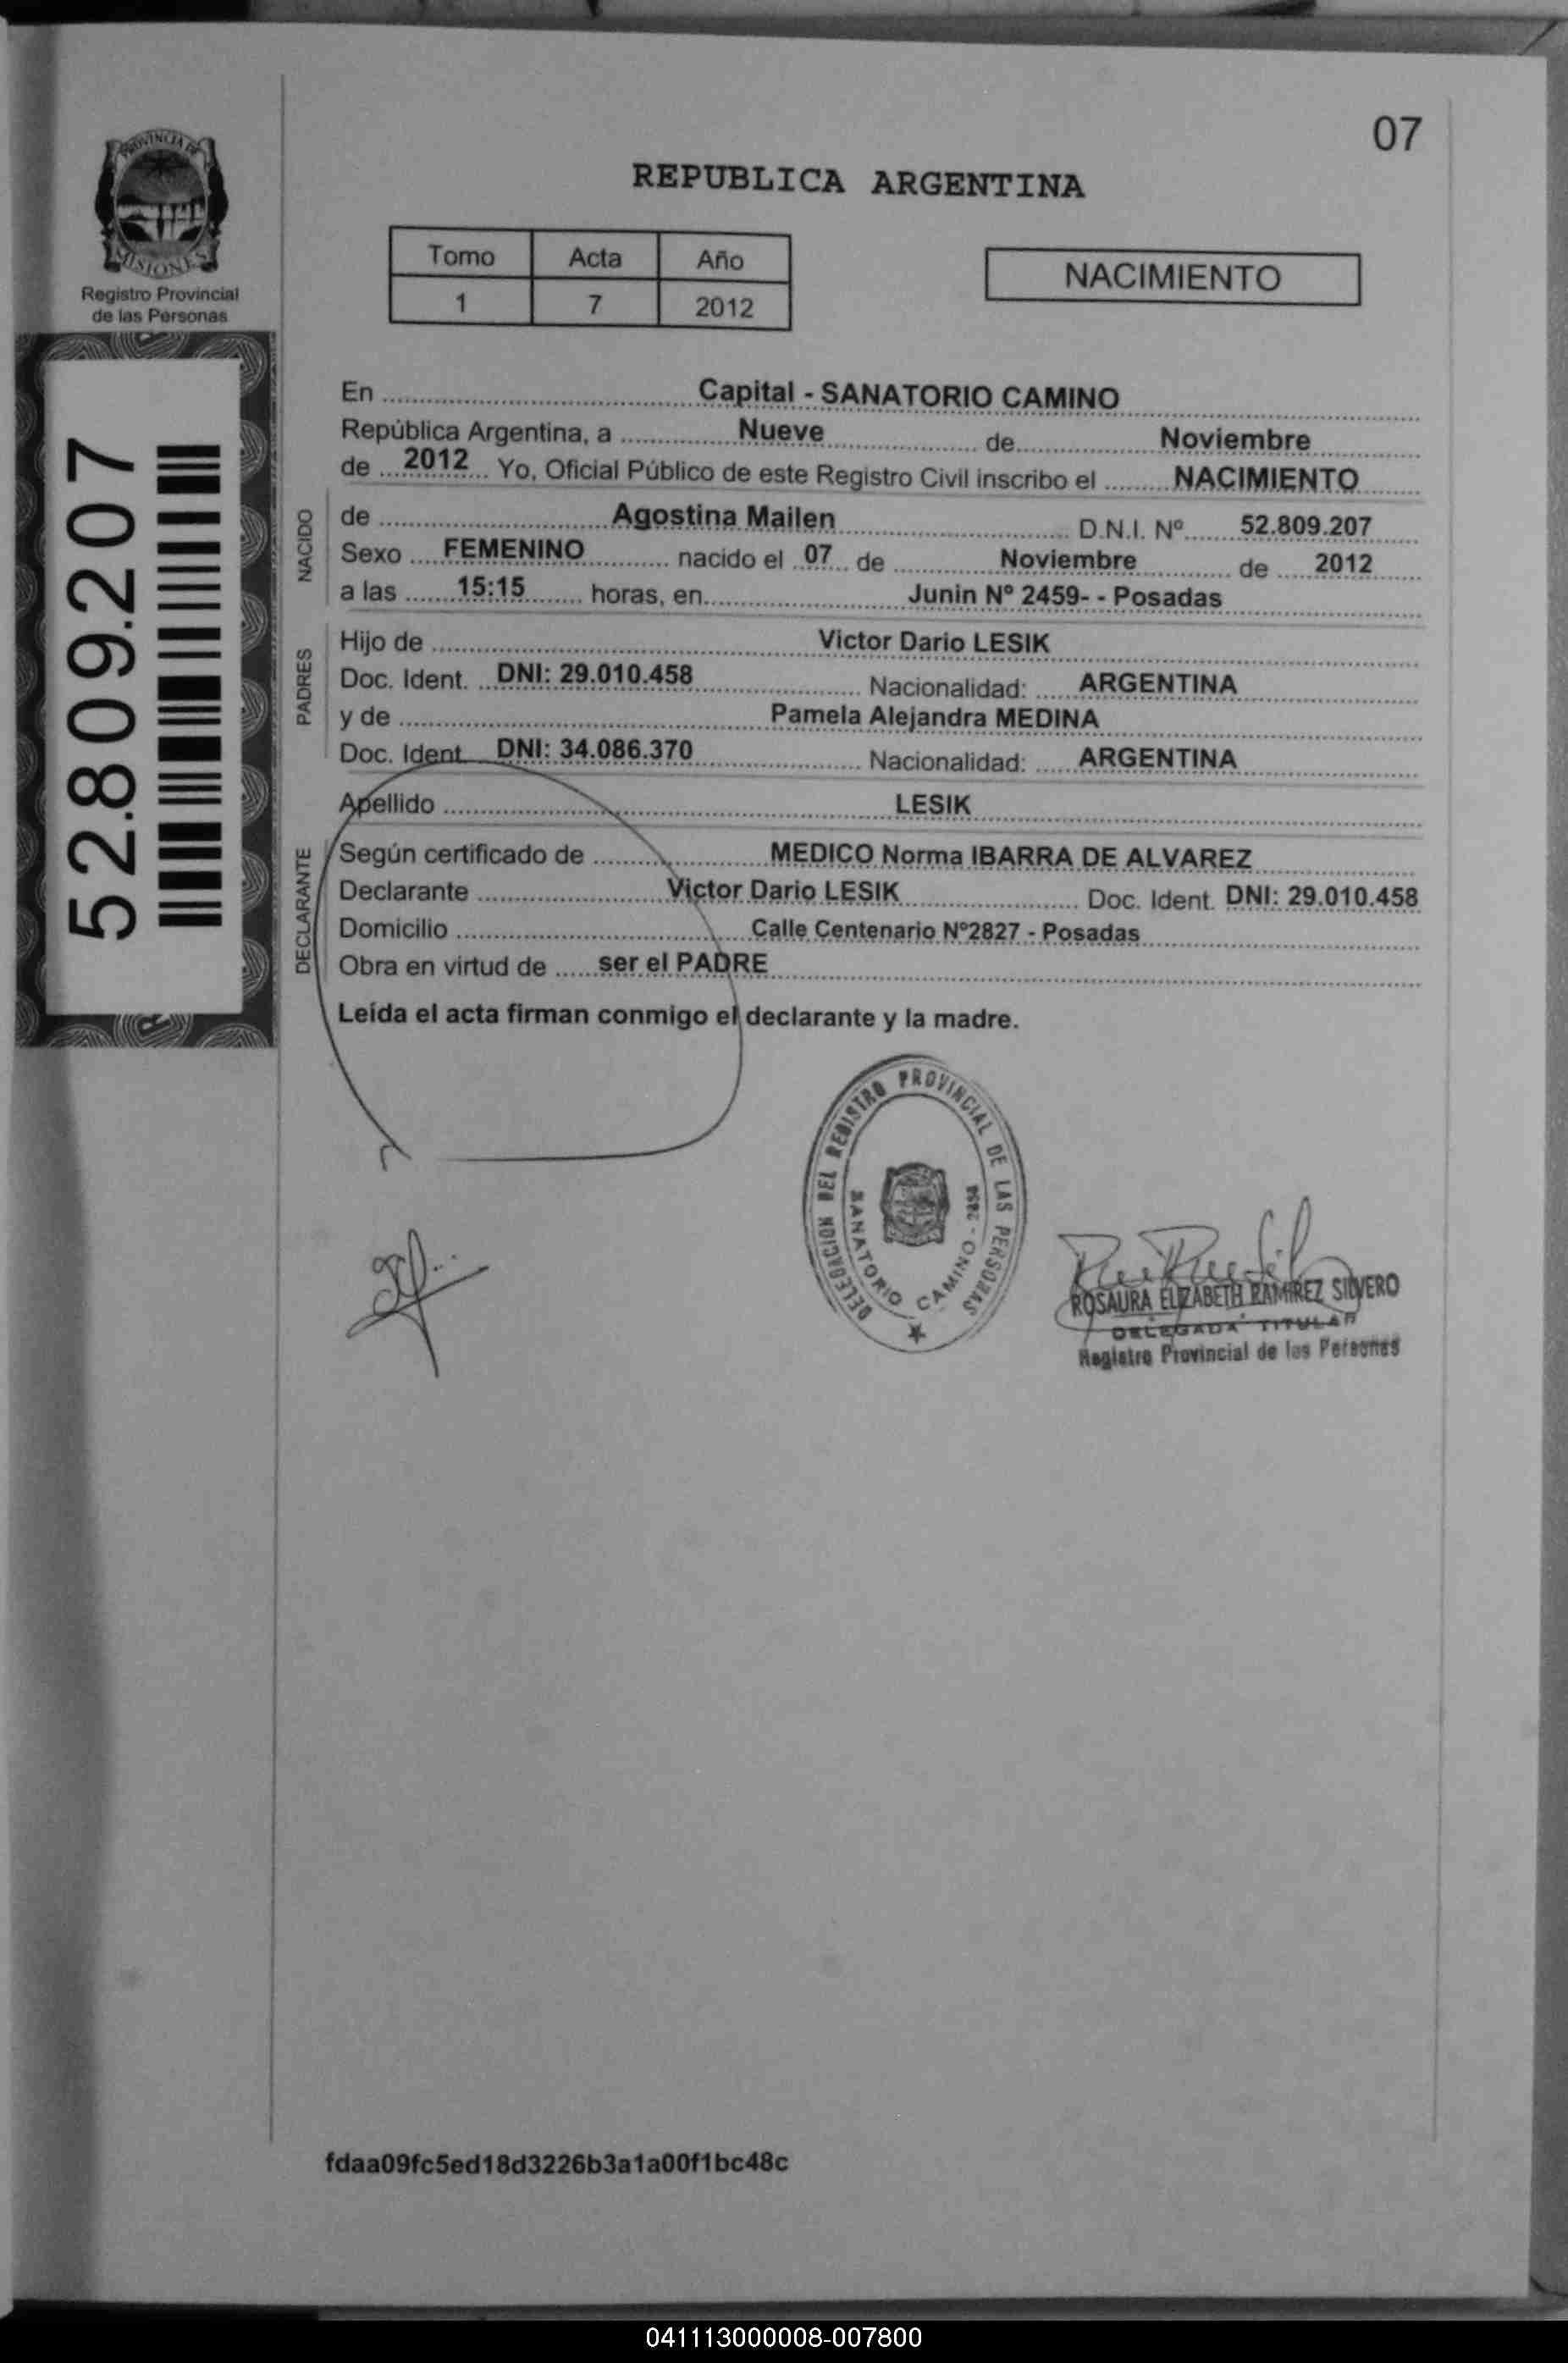 07
PROVINCIA DE
MISIONES
Registro Provincial
de las Personas
REPUBLICA ARGENTINA
Tomo Acta Año
1 7 2012
NACIMIENTO
52.809.207
En Capital - SANATORIO CAMINO
República Argentina, a Nueve de Noviembre
de 2012 Yo, Oficial Público de este Registro Civil inscribo el NACIMIENTO
NACIDO
de Agostina Mailen D.N.I. Nº 52.809.207
Sexo FEMENINO nacido el 07 de Noviembre de 2012
a las 15:15 horas, en Junin Nº 2459- - Posadas
PADRES
Hijo de Victor Dario LESIK
Doc. Ident. DNI: 29.010.458 Nacionalidad: ARGENTINA
y de Pamela Alejandra MEDINA
Doc. Ident. DNI: 34.086.370 Nacionalidad: ARGENTINA
Apellido LESIK
DECLARANTE
Según certificado de MEDICO Norma IBARRA DE ALVAREZ
Declarante Victor Dario LESIK Doc. Ident. DNI: 29.010.458
Domicilio Calle Centenario Nº2827 - Posadas
Obra en virtud de ser el PADRE
Leída el acta firman conmigo el declarante y la madre.
DELEGACION DEL REGISTRO PROVINCIAL DE LAS PERSONAS
SANATORIO CAMINO -
ROSAURA ELIZABETH RAMIREZ SILVERO
DELEGADA TITULAR
Registro Provincial de las Personas
fdaa09fc5ed18d3226b3a1a00f1bc48c
041113000008-007800